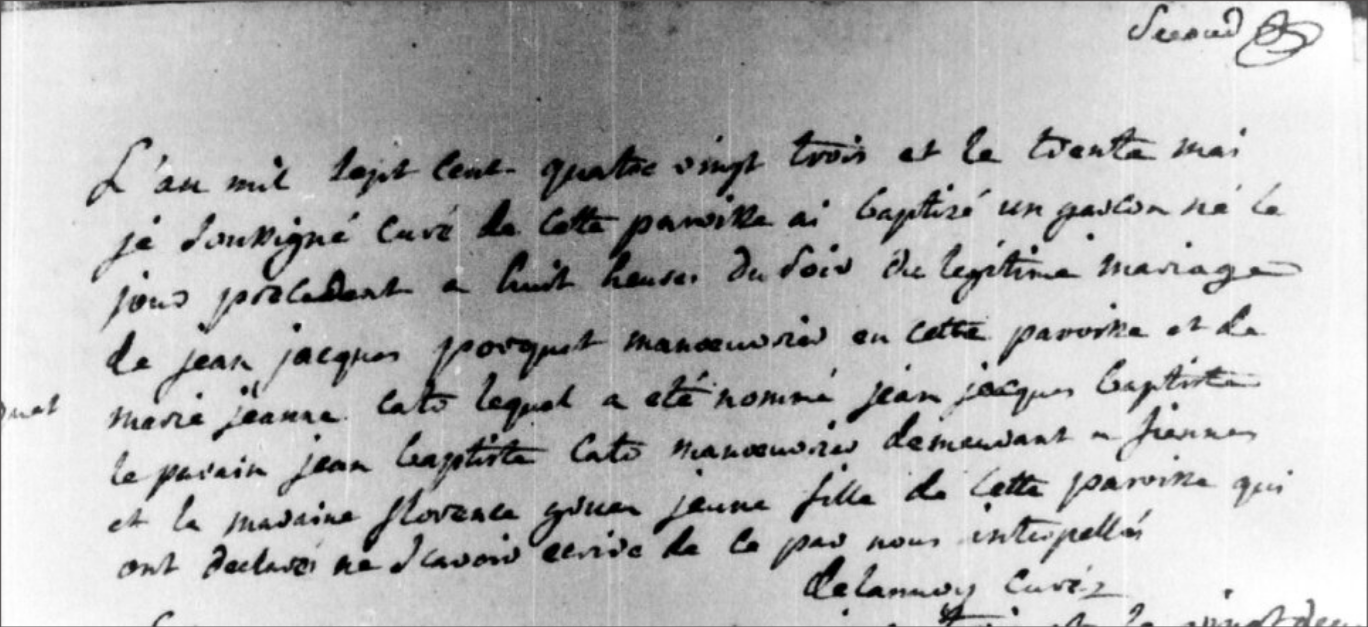 Second
L'an mil sept cent quatre vingt trois et le trente mai
je soussigné curé de cette paroisse ai baptizé un garcon né le
jour précédent a huit heures du soir du légitime mariage
de jean jacques porquet manoeuvrier en cette paroisse et de
marie jeanne Cato lequel a eté nommé jean jacques baptiste
le parain jean baptiste Cato manoeuvrier demeurant a fiennes
et la maraine florence jeune fille de cette paroisse qui
ont declarés ne scavoir ecrire de ce par nous interpellés
delannoy curé